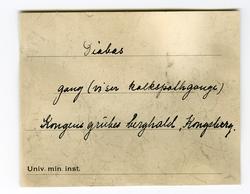 Diabas
gang (viser kalkspathgange)
Kongens grubes berghald, Kongsberg.
Univ. min. inst.